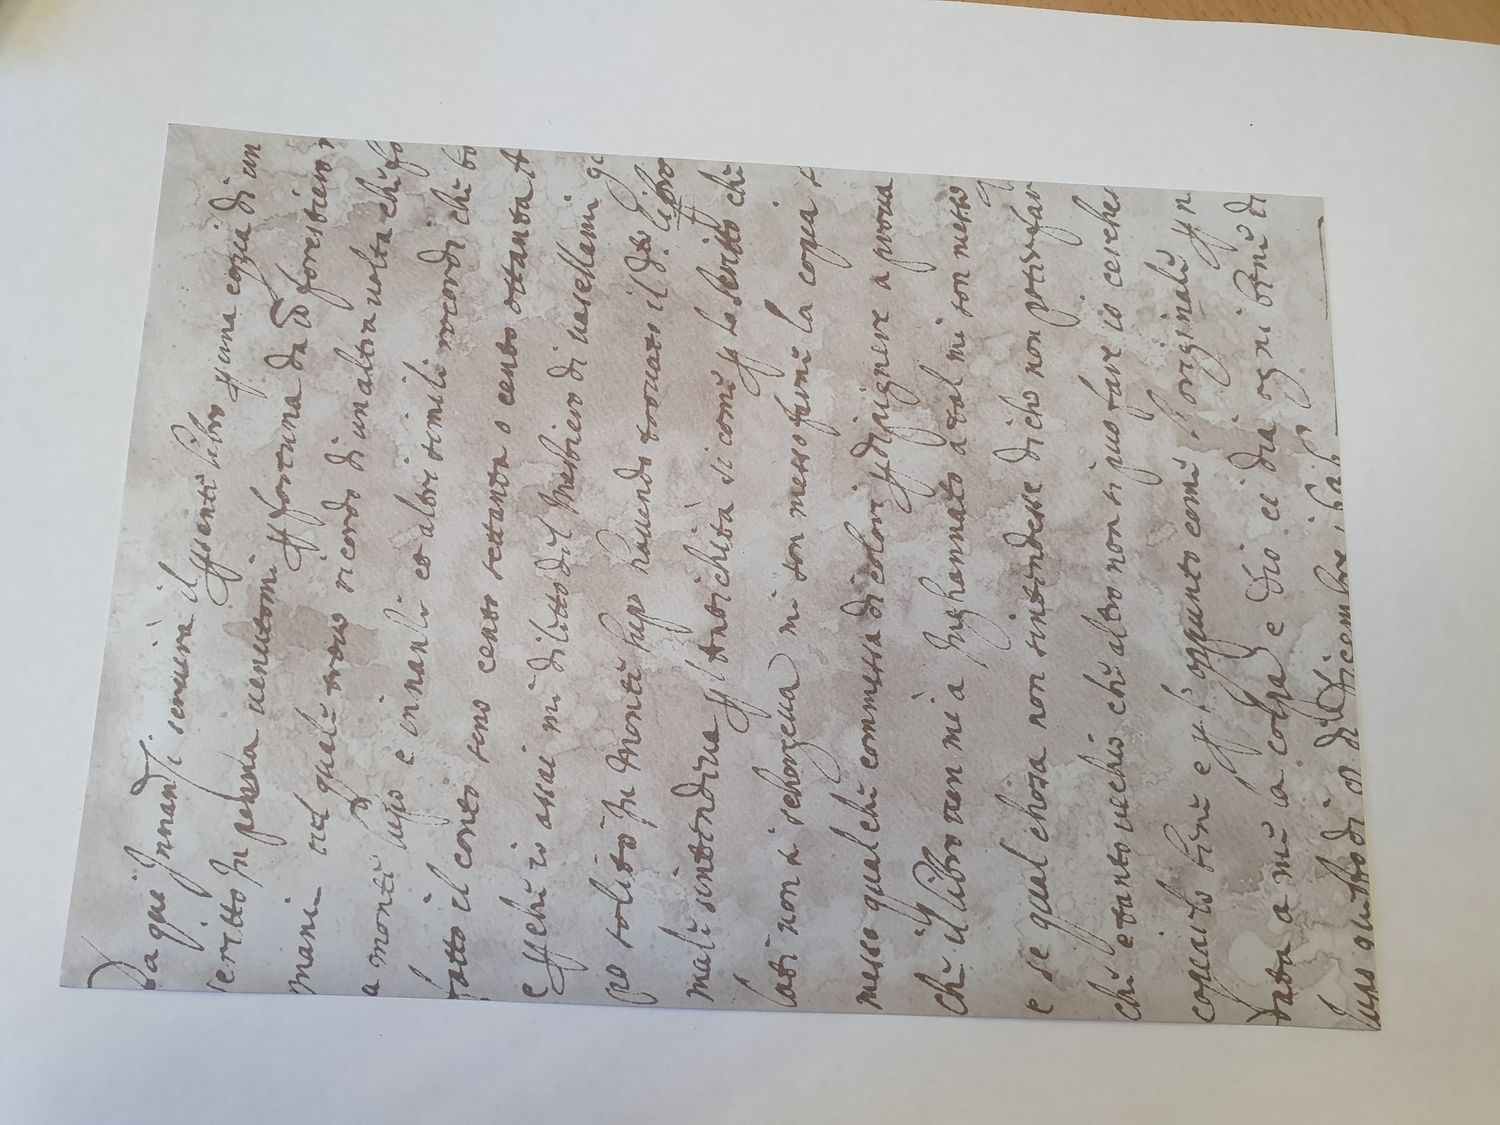 Da qui Innanzi scriverà il presente libro p una copia di un
scritto In penna venutomi p fortuna da Do forestiero
mani nel quale trovo ricordo di unaltra volta chi fo
a monte lupo e innanli co altri simili ricordi chi bo
fatto il conto sono cento settanta o cento ottanta A
e pche io assai mi diletto dil Mestiero di vasellami
po solito In monte lupo havendo trovato il do libro
male sintendiva pl Antichità si come p lo scritto chi
lati non si schorgeva mi son messo farne la copia
messo qual che commessa di colori p dipignere a prova
chi il libro vien mi a Inghannato a tal mi son messo
e se qual chosa non sintendesse dicho non poter far
chi e tanto vechio chi altro non si puo fare io cerche
copiarlo bene e p l' appunto come l'originale p n
data a me la colpa e Dio ci dia ogni bene di
lupo questo di 10 di Dicembre